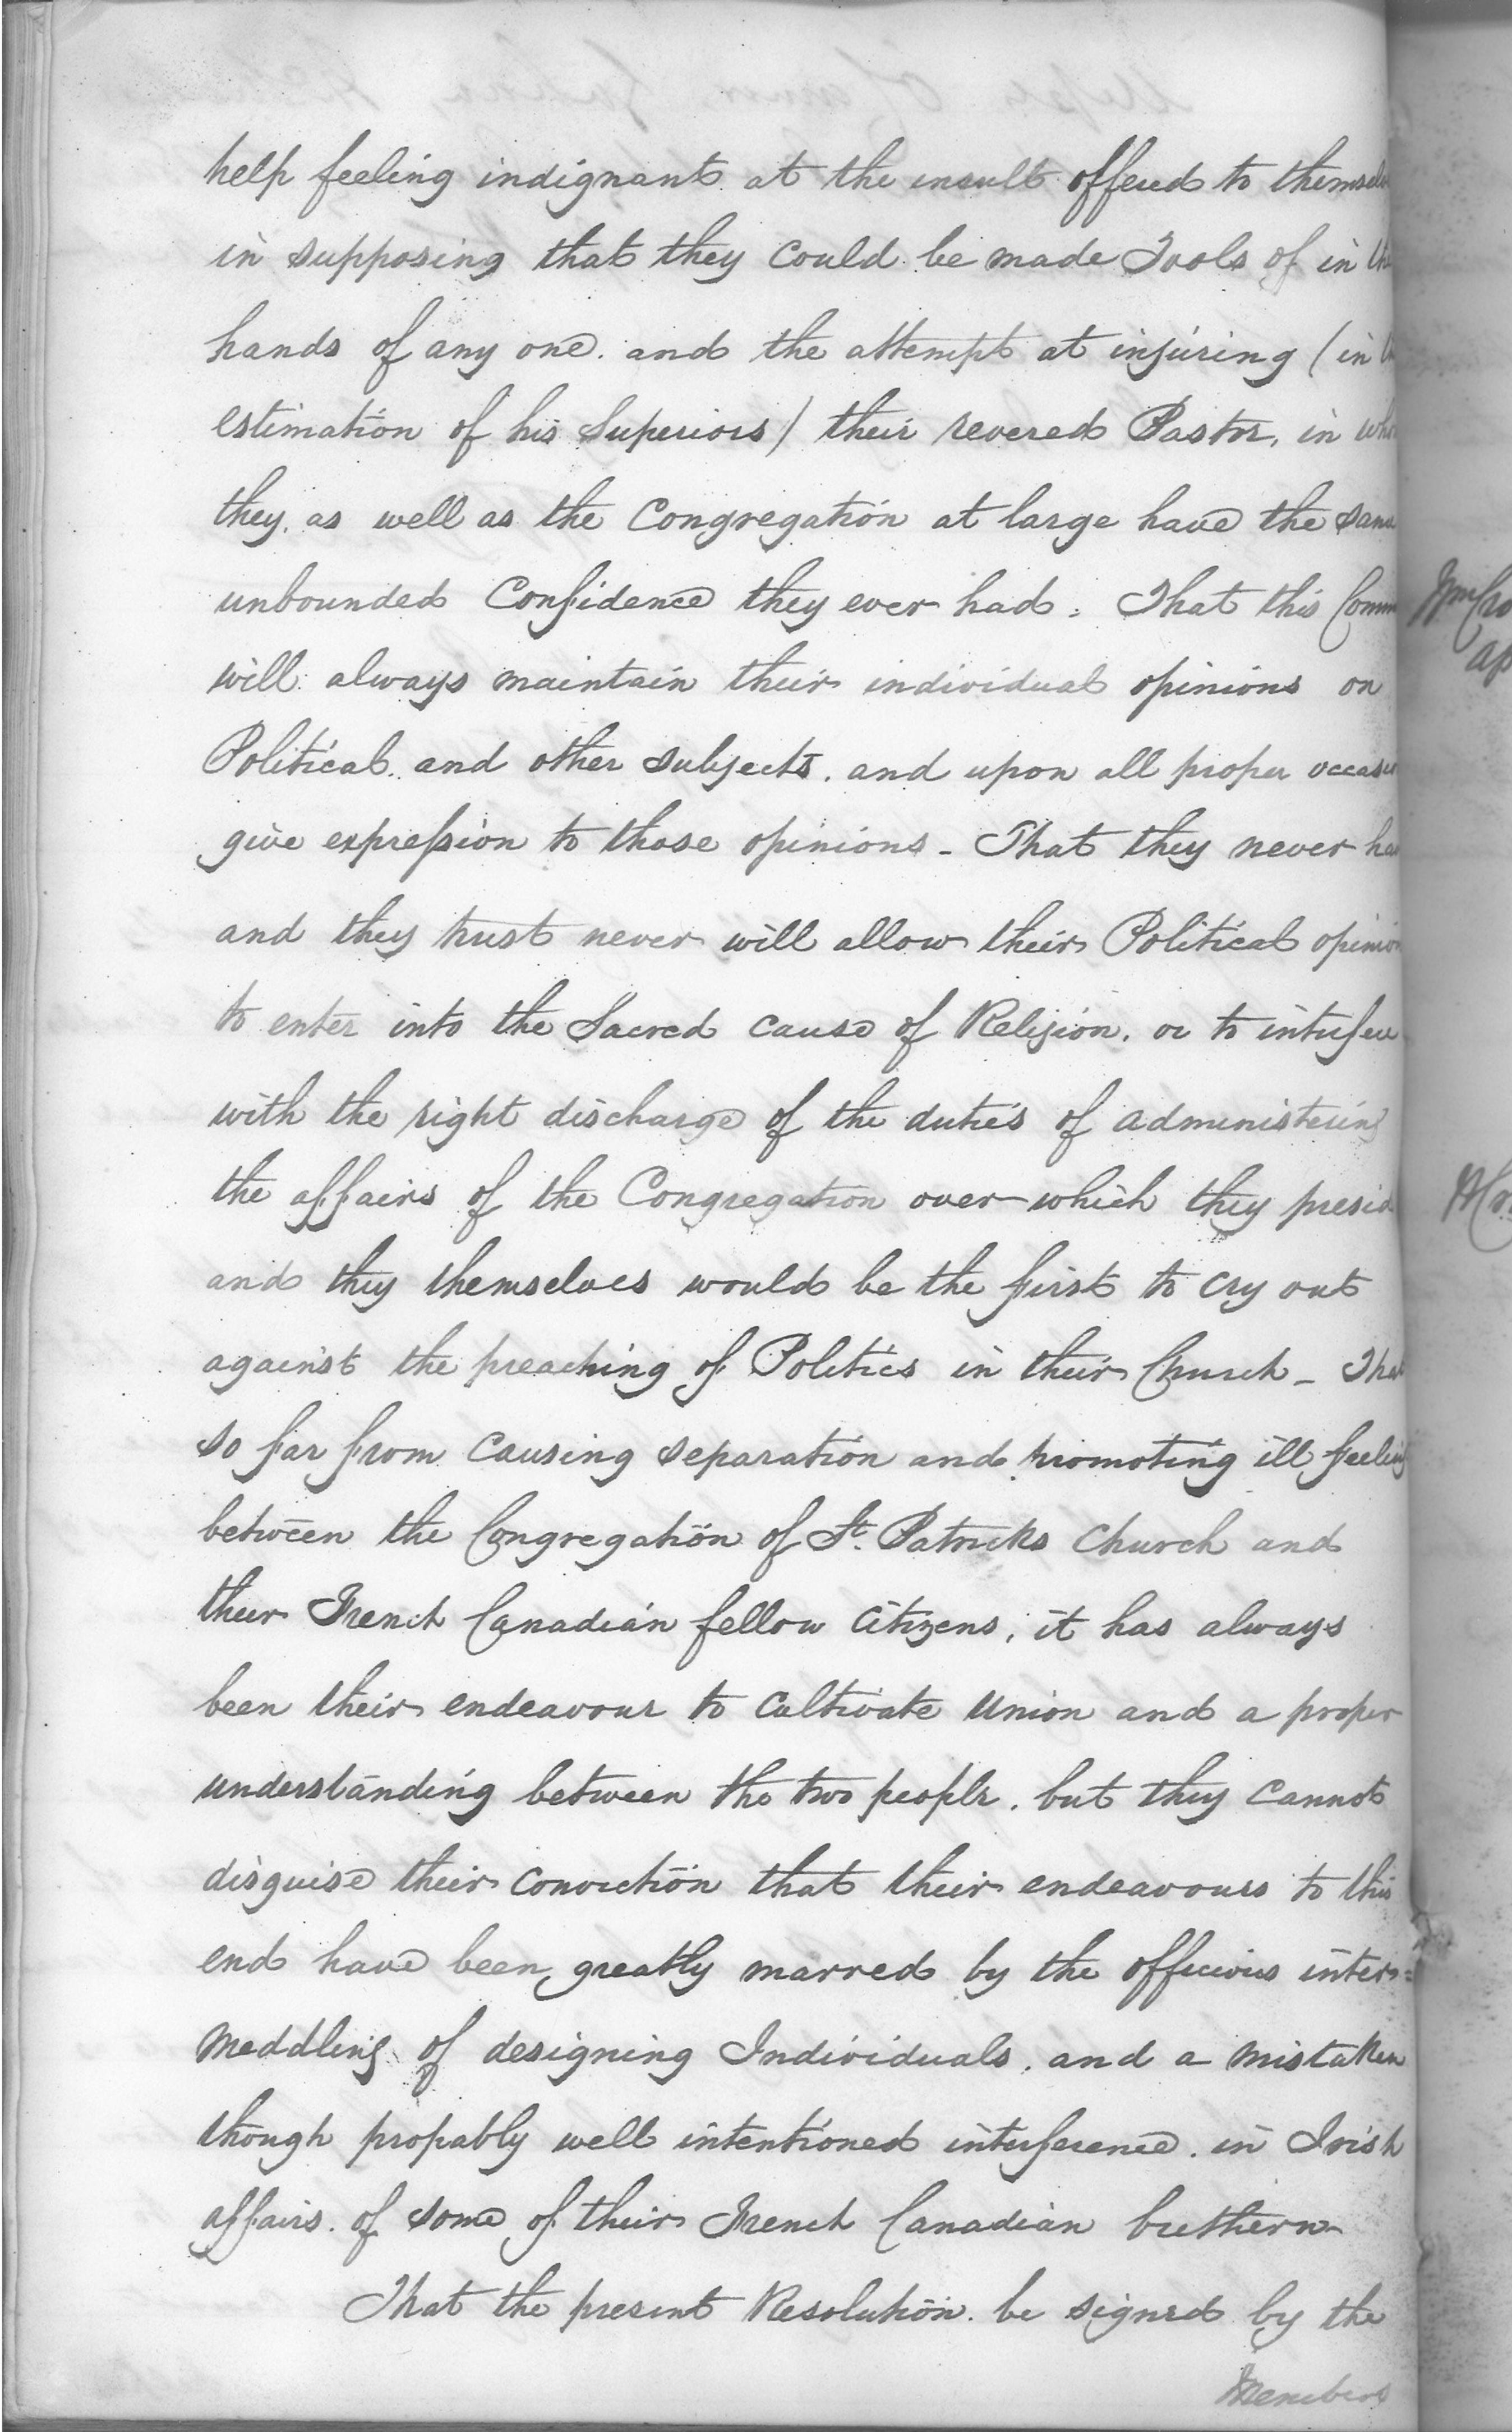 help feeling indignant at the insult offered to themselv
in supposing that they could be made Tools of in the
hands of any one. and the attempt at injuring (in
estimation of his Superiors) their revered Pastor, in who
they, as well as the Congregation at large have the same
unbounded Confidence they ever had. That this Comm
will always maintain their individual opinions on
Political. and other subjects. and upon all proper occasio
give expression to those opinions - That they never ha
and they trust never will allow their Political opinion
to enter into the Sacred cause of Religion. or to interfere
with the right discharge of the duties of administering
the affairs of the Congregation over which they presid
and they themselves would be the first to cry out
against the preaching of Politics in their Church - That
so far from causing separation and promoting ill feeling
between the Congregation of St. Patricks Church and
their French Canadian fellow Citizens, it has always
been their endeavour to cultivate Union and a proper
understanding between the two people. but they cannot
disguise their conviction that their endeavours to this
end have been greatly marred by the officious inter=
meddling of designing Individuals. and a mistaken
though propably well intentioned interference. in Irish
affairs. of some of their French Canadian brethern
That the present Resolution. be signed by the
Members